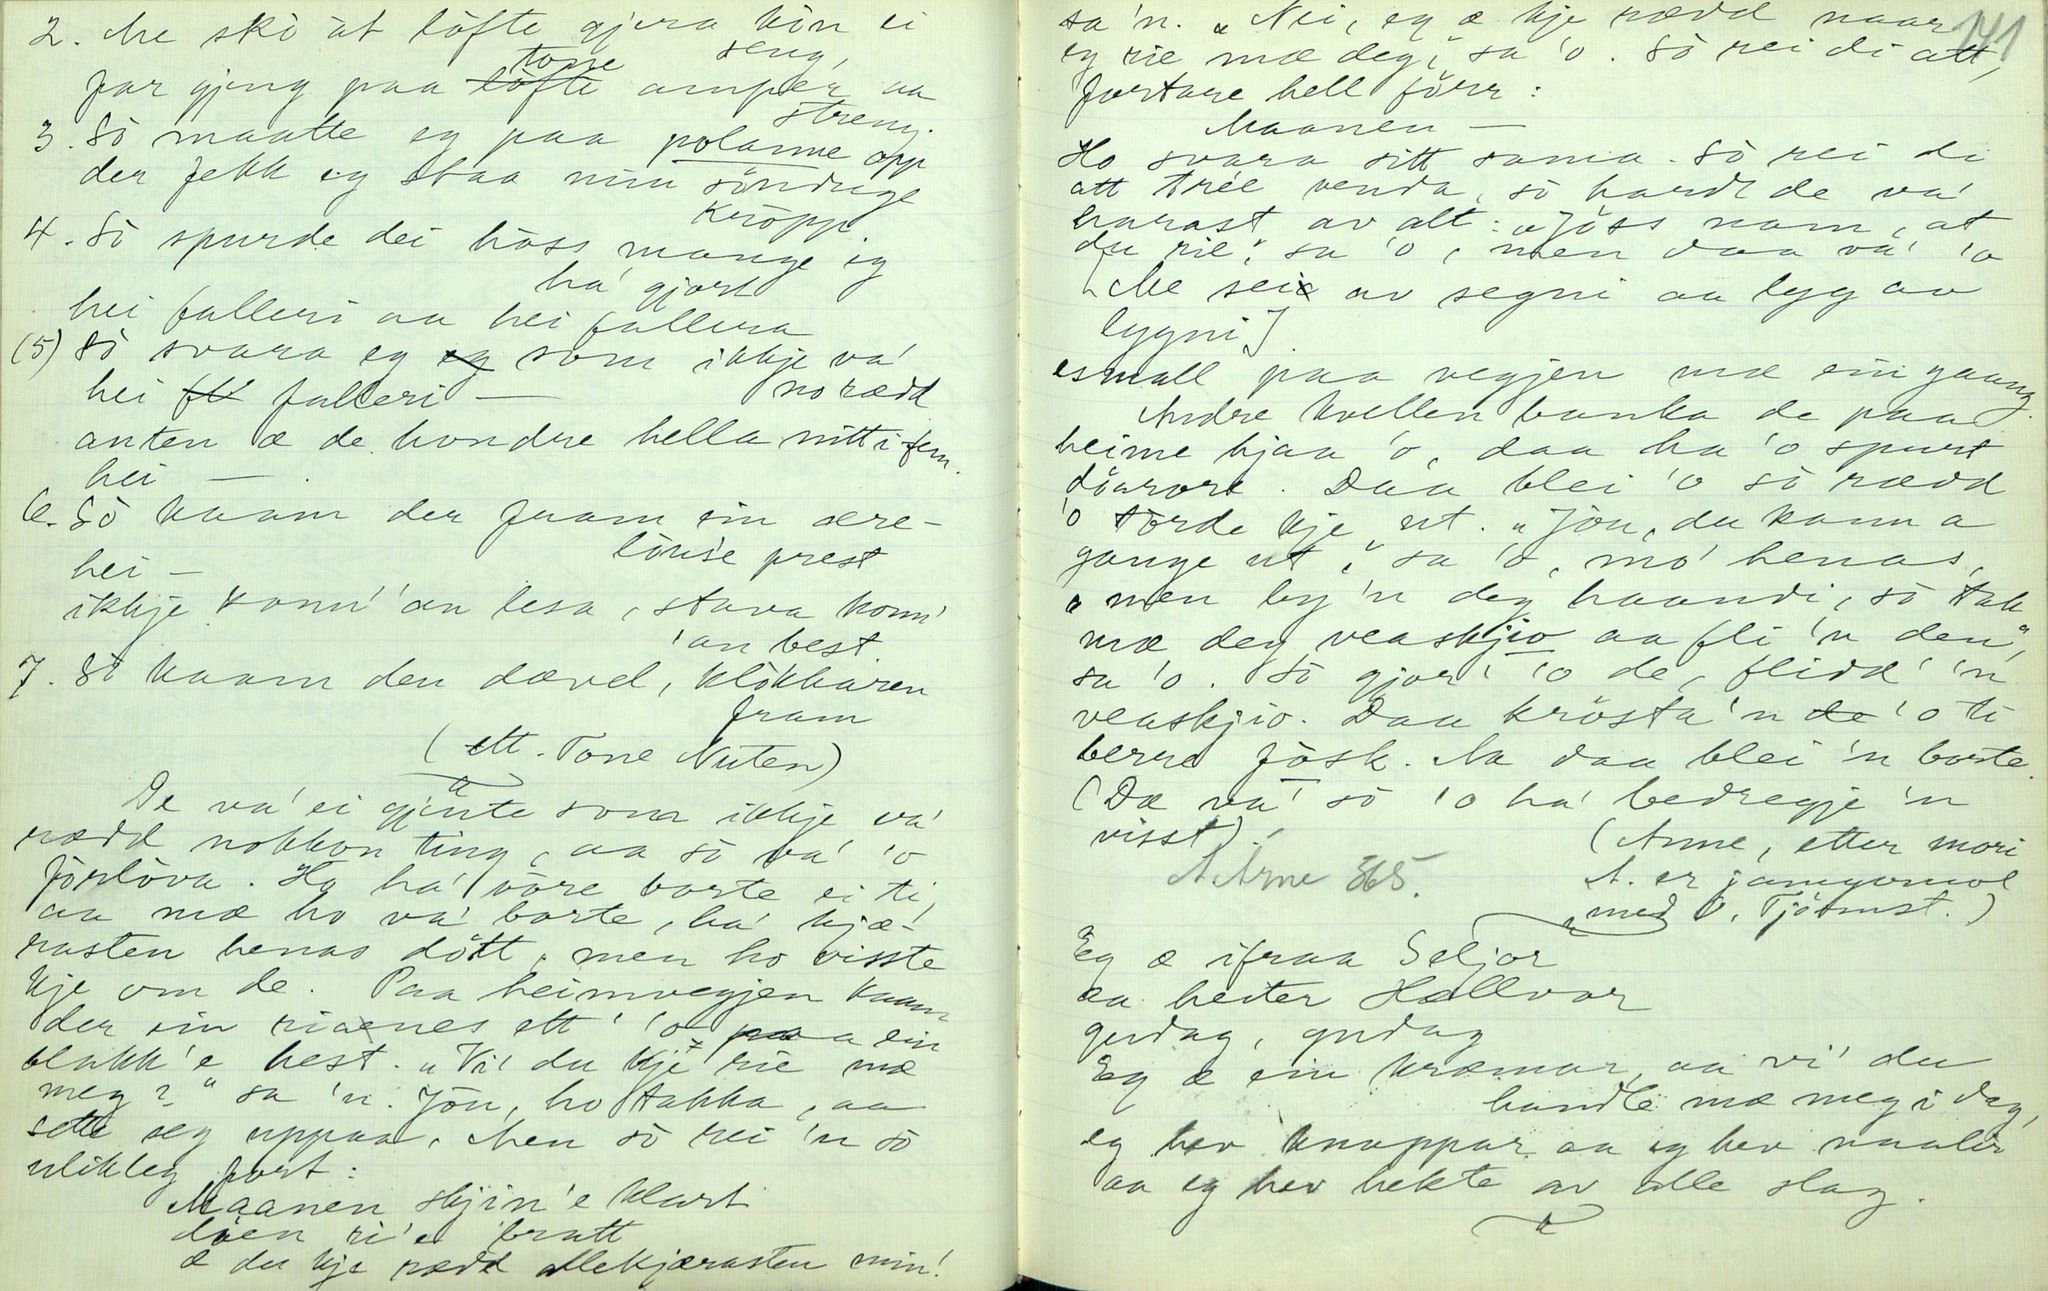 2. Me ski åt löfte gjera kvin ei
seng,
far gjeng paa löfte torre amper aa
streng.
3. Sò maatte eg paa polanne opp
der fekk eg staa min sönduge
kröpp.
4. Sò spurde dei hoss mange eg
ha' gjort
hei falleri aa hei fallera
(5) Sò svara eg eg som ikkje va'
no rædd
hei fll falleri —
anten æ de hondre hella nitti fem.
hei —
6. Sò kaam der fram ein ære-
löuse prest
hei —
ikkje konn' 'an lesa, stava konn'
'an best
7. Sò kaam den dævel, klökkaren
fram
(ett. Tone Nuten)
De va' ei gjente som ikkje va'
rædd nokkon ting, aa sò va' 'o
förlòva. Ho ha' vòre borte ei ti,
aa mæ ho va' borte, ha' kjæ-
rasten henas dött, men ho visste
kje om de. Paa heimvegjen kaam
der ein riaenes ett' 'o paa ein
blakk'e hest. "Vi' du kje rie mæ
meg?" sa 'n. Jòu, ho takka, aa
sette seg uppaa. Men sò rei 'n sò
ulikleg fort:
Maanen skjin'e klart
döen ri'e bratt
æ du kje rædd allekjærasten min!
141
sa 'n. "Nei, eg æ kje rædd naar
eg rie mæ deg," sa 'o. Sò rei di att,
fortare hell förr:
Maanen —
Ho svara sitt sama. Sò rei di
att trée venda, sò hardt de va'
harast av alt: "Jöss namn, at
du rie," sa 'o, men daa va' 'o
[Me seie av segni aa lyg av
lygni]
esmall paa vegjen mæ ein gaang.
Andre kvellen banka de paa
heime hjaa 'o, daa ha 'o spurt
döarore. Daa blei 'o sò rædd
'o torde kje ut. "Jòu, du kann a
gange ut," sa 'o, mo' henas,
"men by 'n deg haandi, sò tak
mæ deg veaskjio aa fli 'n den",
sa 'o. Sò gjor' 'o de, flidd' 'n
veaskjio. Daa krösta 'n de 'o ti
berre fösk. Aa daa blei 'n borte.
(Dæ va' sò 'o ha' bedregje 'n
visst).
(Anne, etter mori
A. er jamgomol
med O. Tjönnst.)
A Arne 365.
Eg æ ifraa Seljor
aa heiter Hallvor
gudag, gudag
Eg æ ein kræmar, aa vi' du
handle mæ meg i dag,
eg hev knappar aa eg hev naaler
aa eg hev hekte av alle slag.